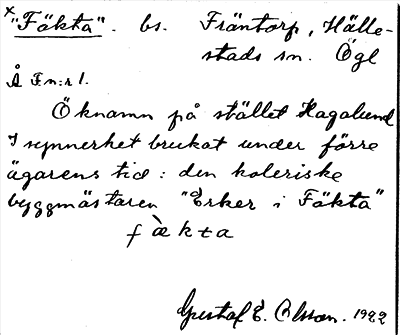 x "Fäkta". bs. Fräntorp, Hälle-
stads sn. Ögl
Å Fn:r 1.
Öknamn på stället Hagalund
I synnerhet brukat under förre
ägarens tid: den koleriske
byggmästaren "Erker i Fäkta"
fὲkta
Gustaf E. Olsson. 1922